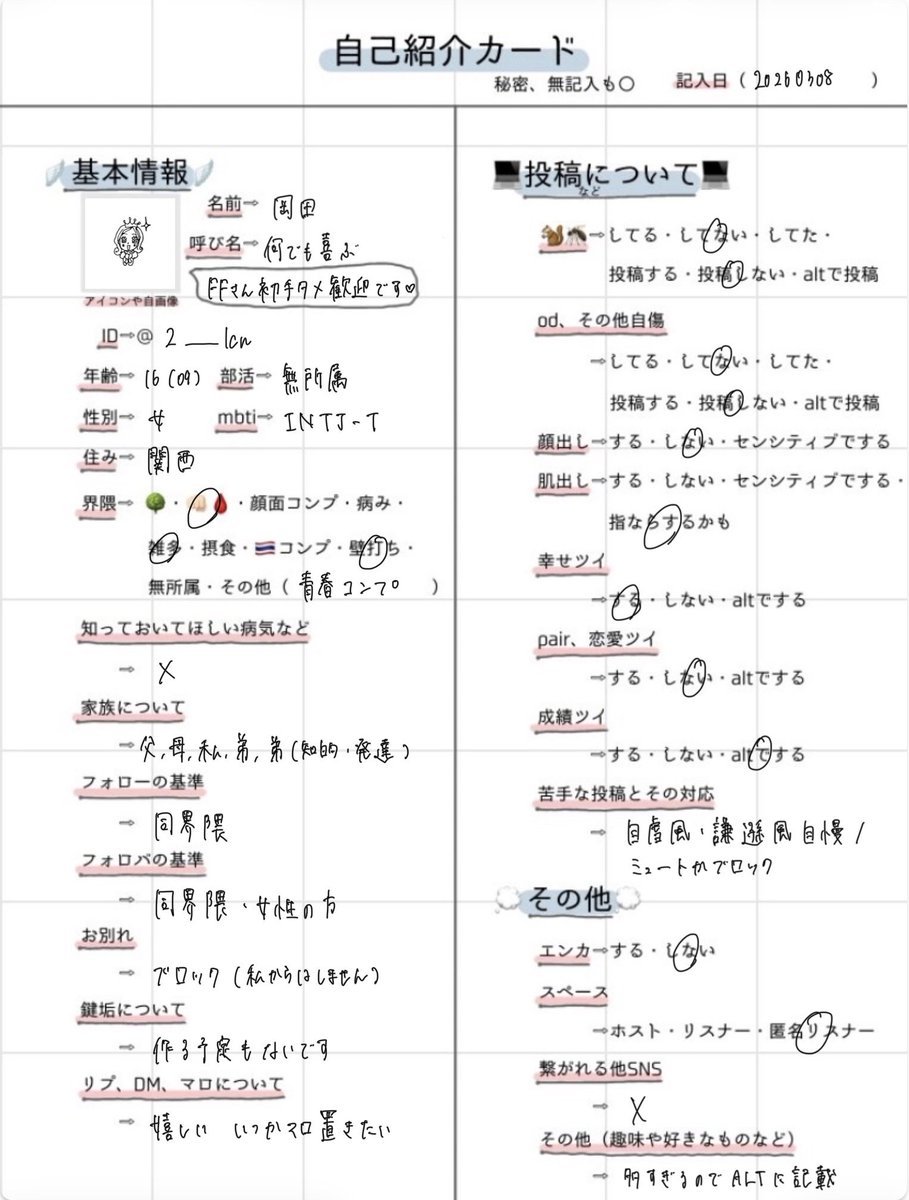 自己紹介カード
秘密、無記入も〇 記入日（20260308）
🪽基本情報🪽
名前⇨ 岡田
呼び名⇨ 何でも喜ぶ
FFさん初手タメ歓迎です♡
アイコンや自画像
ID⇨@ 2__lcn
年齢⇨ 16(09) 部活⇨ 無所属
性別⇨ 女 mbti⇨ INTJ-T
住み⇨ 関西
界隈⇨ 🌳・👊🏻🩸・顔面コンプ・病み・
雑多・摂食・🇹🇭コンプ・壁打ち・
無所属・その他（青春コンプ）
知っておいてほしい病気など
⇨ ×
家族について
⇨ 父,母,私,弟,弟(知的・発達)
フォローの基準
⇨ 同界隈
フォロバの基準
⇨ 同界隈・女性の方
お別れ
⇨ ブロック(私からはしません)
鍵垢について
⇨ 作る予定もないです
リプ、DM、マロについて
⇨ 嬉しい いつかマロ置きたい
💻投稿について💻
など
🐿️🦟⇨してる・してない・してた・
投稿する・投稿しない・altで投稿
od、その他自傷
⇨してる・してない・してた・
投稿する・投稿しない・altで投稿
顔出し⇨する・しない・センシティブでする
肌出し⇨する・しない・センシティブでする・
指ならするかも
幸せツイ
⇨する・しない・altでする
pair、恋愛ツイ
⇨する・しない・altでする
成績ツイ
⇨する・しない・altでする
苦手な投稿とその対応
⇨ 自虐風・謙遜風自慢/
ミュートかブロック
💭その他💭
エンカ⇨する・しない
スペース
⇨ホスト・リスナー・匿名リスナー
繋がれる他SNS
⇨ ×
その他（趣味や好きなものなど）
⇨ 多すぎるのでALTに記載